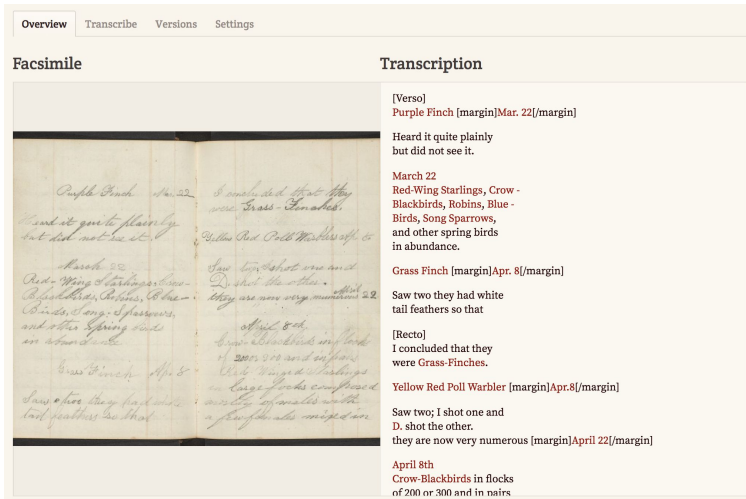 Overview Transcribe Versions Settings
Facsimile
Purple Finch Mar. 22
Heard it quite plainly
but did not see it.
March 22
Red-Wing Starlings, Crow-
Blackbirds, Robins, Blue-
Birds, Song-Sparrows,
and other spring birds
in abundance.
Grass Finch Apr. 8
Saw two they had white
tail feathers so that
I concluded that they
were Grass-Finches.
Yellow Red Poll Warblers Apr. 8
Saw two; I shot one and
D. shot the other.
they are now very numerous April 22
April 8th
Crow-Blackbirds in flocks
of 200 or 300 and in pairs
Red Winged Starlings
in large flocks composed
mostly of males with
a few females mixed in
Transcription
[Verso]
Purple Finch [margin]Mar. 22[/margin]
Heard it quite plainly
but did not see it.
March 22
Red-Wing Starlings, Crow -
Blackbirds, Robins, Blue -
Birds, Song Sparrows,
and other spring birds
in abundance.
Grass Finch [margin]Apr. 8[/margin]
Saw two they had white
tail feathers so that
[Recto]
I concluded that they
were Grass-Finches.
Yellow Red Poll Warbler [margin]Apr.8[/margin]
Saw two; I shot one and
D. shot the other.
they are now very numerous [margin]April 22[/margin]
April 8th
Crow-Blackbirds in flocks
of 200 or 300 and in pairs